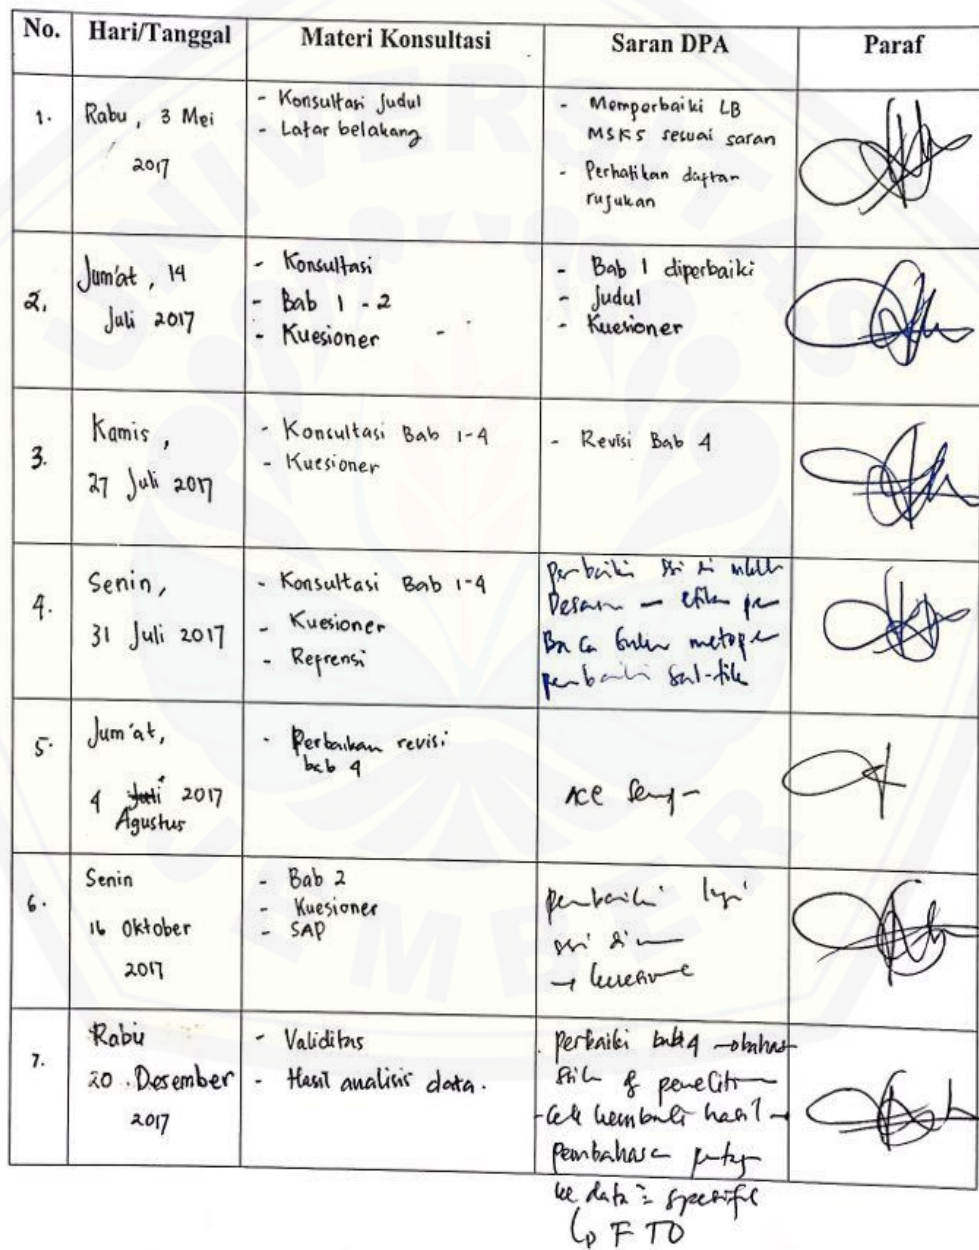 No. Hari/Tanggal Materi Konsultasi Saran DPA Paraf
1. Rabu, 3 Mei
2017
- Konsultasi Judul
- Latar belakang
- Memperbaiki LB
MSKS sesuai saran
- Perhatikan daftar
rujukan
2. Jum'at, 14
Juli 2017
- Konsultasi
- Bab 1 - 2
- Kuesioner -
- Bab 1 diperbaiki
- Judul
- Kuesioner
3. Kamis,
27 Juli 2017
- Konsultasi Bab 1-4
- Kuesioner
- Revisi Bab 4
4. Senin,
31 Juli 2017
- Konsultasi Bab 1-4
- Kuesioner
- Reprensi
Baca buku
5. Jum'at,
4 Juli 2017
Agustus
- Perbaikan revisi
bab 4
ACC
6. Senin
16 Oktober
2017
- Bab 2
- Kuesioner
- SAP
7. Rabu
20 Desember
2017
- Validitas
- Hasil analisis data.
perbaiki bab 4
- Cek kembali hasil
ke data spesifik
UNIVERSITAS JEMBER